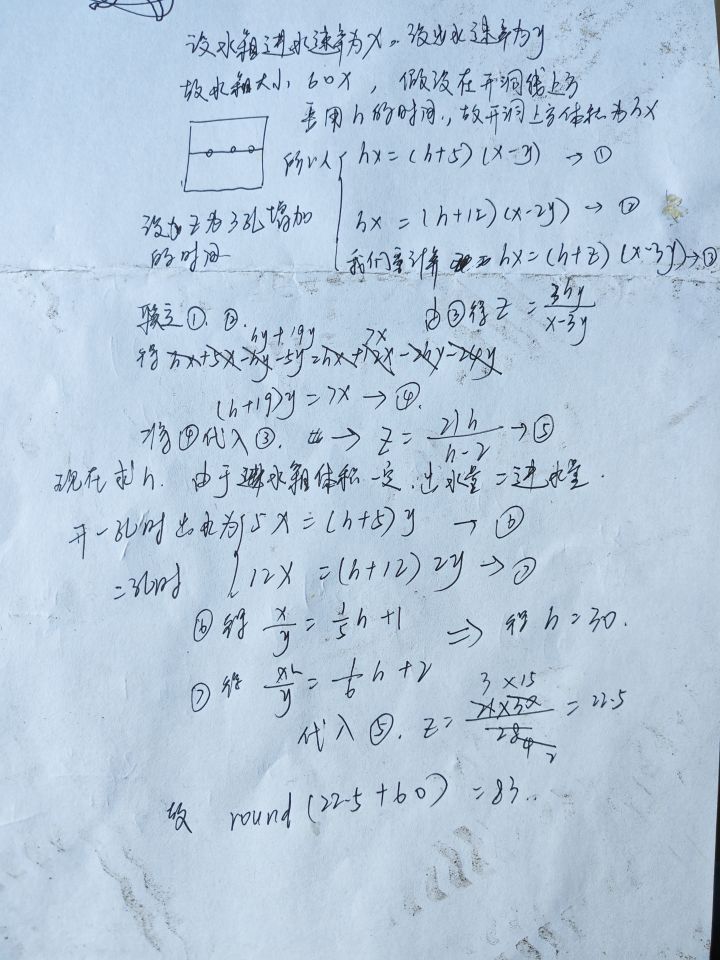 设水箱进水速率为x。设出水速率为y
故水箱大小 60x，假设在开洞线上方
要用h的时间，故开洞上方体积为hx
所以 hx=(h+5)(x-y) → ①
设z为3孔增加
的时间
hx = (h+12)(x-2y) → ②
我们要计算 hx=(h+z)(x-3y) → ③
联立①、②.
由③得 z = 3hy/(x-3y)
hy+19y 7x
得 hx+5x-hy-5y=hx+12x-2hy-24y
(h+19)y=7x → ④.
将④代入③. → z = 21h/(h-2) → ⑤
现在求h. 由于水箱体积一定，出水量=进水量.
开一孔时出水为 5x = (h+5)y → ⑥
二孔时 12x = (h+12)2y → ⑦
⑥得 x/y = 1/5 h+1 ⇒ 得 h=30.
⑦得 x/y = 1/6 h+2
3×15
代入⑤. z = 21×30/28 = 22.5
故 round(22.5+60) = 83..